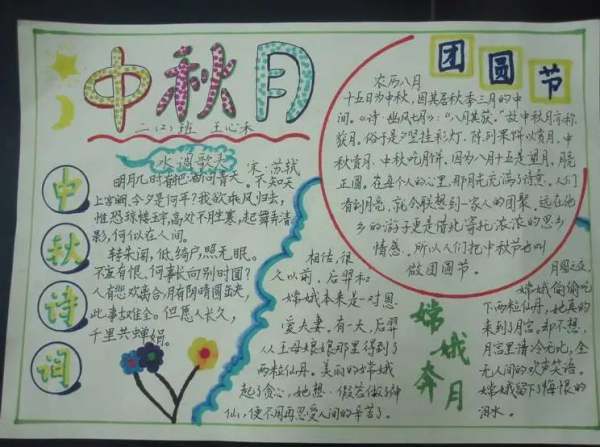 中秋月
二(2)班 王心沐
中秋诗词
水调歌头 宋·苏轼
明月几时有把酒问青天。不知天
上宫阙,今夕是何年?我欲乘风归去,
惟恐琼楼玉宇,高处不胜寒,起舞弄清
影,何似在人间。
转朱阁,低绮户,照无眠。
不宜有恨,何事长向别时圆?
人有悲欢离合,月有阴晴圆缺,
此事故难全。但愿人长久,
千里共蝉娟。
团圆节
农历八月
十五日为中秋,因其居秋季三月的中
间。《诗·幽风七月》:“八月其获。”故中秋月亦称
获月。俗子是夕竖挂彩灯,陈列果饼以赏月,中
秋赏月,中秋吃月饼,因为八月十五是望月,晓
正圆,在每个人的心里,那月光充满了诗意,人们
看到月亮,就会联想到一家人的团聚,远在他
乡的游子更是借此寄托浓浓的思乡
情感。所以人们把中秋节也叫
做团圆节。
嫦娥奔月
相传,很
久以前,后羿和
嫦娥本来是一对恩
爱夫妻。有一天,后羿
从王母娘娘那里得到了
两粒仙丹。美丽的嫦娥
起了贪心,她想,假若做了神
仙,便不用再忍受人间的辛苦了。
嫦娥偷偷吃
下两粒仙丹,她真的
来到了月宫,却不想,
月宫里清冷无比,全
无人间的欢声笑语。
嫦娥留下了悔恨的
泪水。